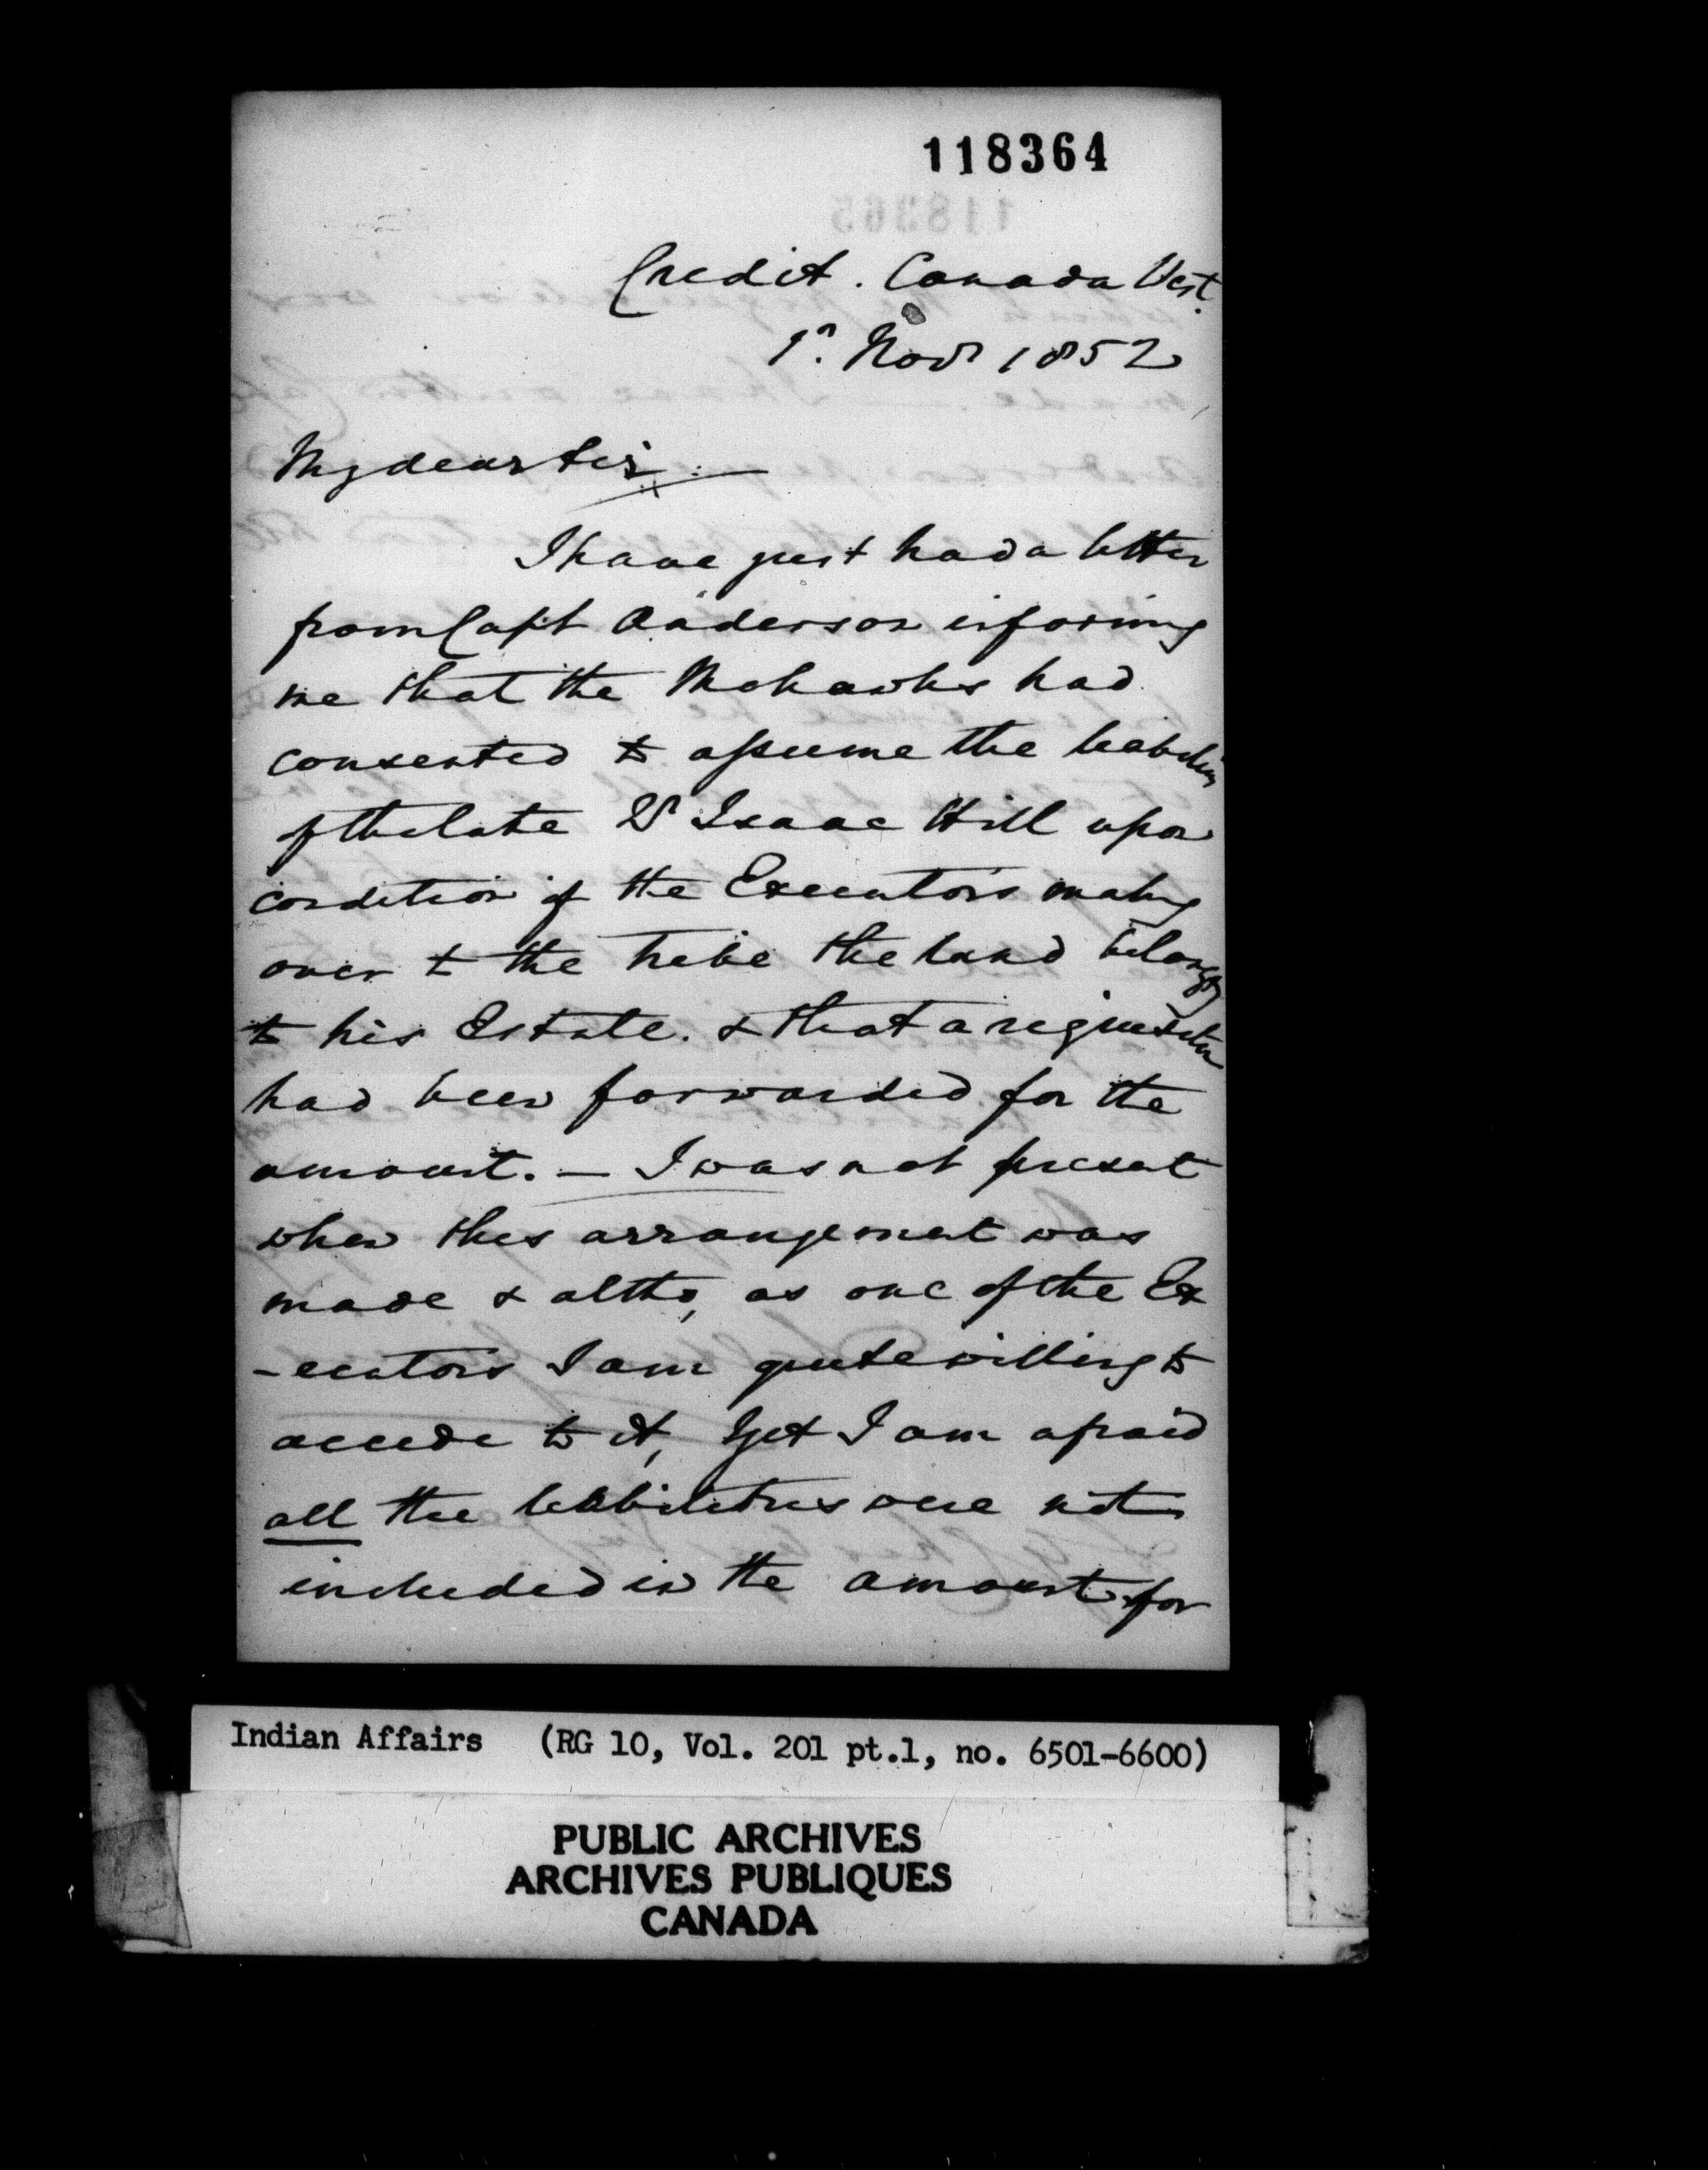 118364
Credit. Canada West.
1st. Novr 1852
My dear Sir. —
I have just had a letter
from Capt Anderson informing
me that the Mohawks had
consented to assume the liabilities
of the late Wm Isaac Hill upon
condition of the Executors making
over to the tribe the land belonging
to his Estate. & that a requisition
had been forwarded for the
amount. — I was not present
when this arrangement was
made & altho, as one of the Ex
-ecutors I am quite willing to
accede to it, Yet I am afraid
all the liabilities were not
included in the amount for
Indian Affairs (RG 10, Vol. 201 pt.1, no. 6501-6600)
PUBLIC ARCHIVES
ARCHIVES PUBLIQUES
CANADA